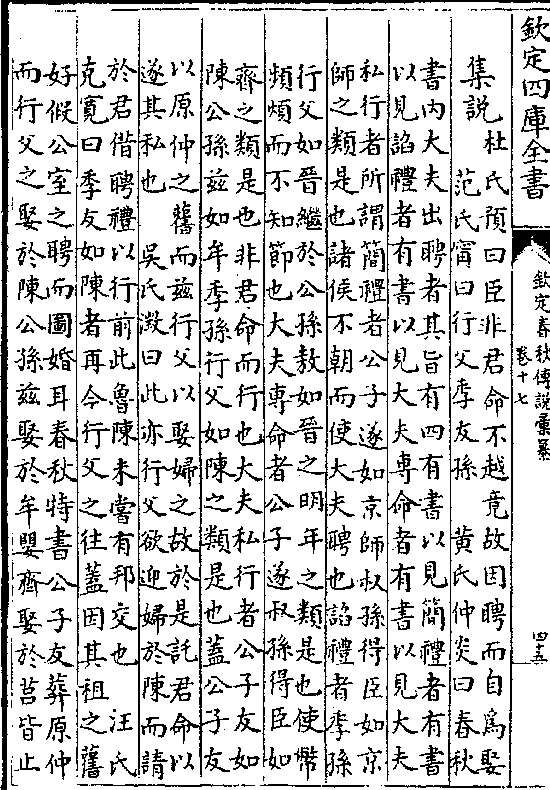 欽定四庫全書
欽定春秋傳說彙纂
卷十七
四十五
集說
杜氏預曰臣非君命不越竟故因聘而自為娶
范氏甯曰行父季友孫
黃氏仲炎曰春秋
書内大夫出聘者其旨有四有書以見簡禮者有書
以見諂禮者有書以見大夫專命者有書以見大夫
私行者所謂簡禮者公子遂如京師叔孫得臣如京
師之類是也諸侯不朝而使大夫聘也諂禮者季孫
行父如晉繼於公孫敖如晉之明年之類是也使幣
頻煩而不知節也大夫專命者公子遂叔孫得臣如
齊之類是也非君命而行也大夫私行者公子友如
陳公孫茲如牟季孫行父如陳之類是也蓋公子友
以原仲之舊而茲行父以娶婦之故於是託君命以
遂其私也
吳氏澂曰此亦行父欲迎婦於陳而請
於君借聘禮以行前此魯陳未嘗有邦交也
汪氏
克寛曰季友如陳者再今行父之往蓋因其祖之舊
好假公室之聘而圖婚耳春秋特書公子友葬原仲
而行父之娶於陳公孫茲娶於牟嬰齊娶於莒皆止